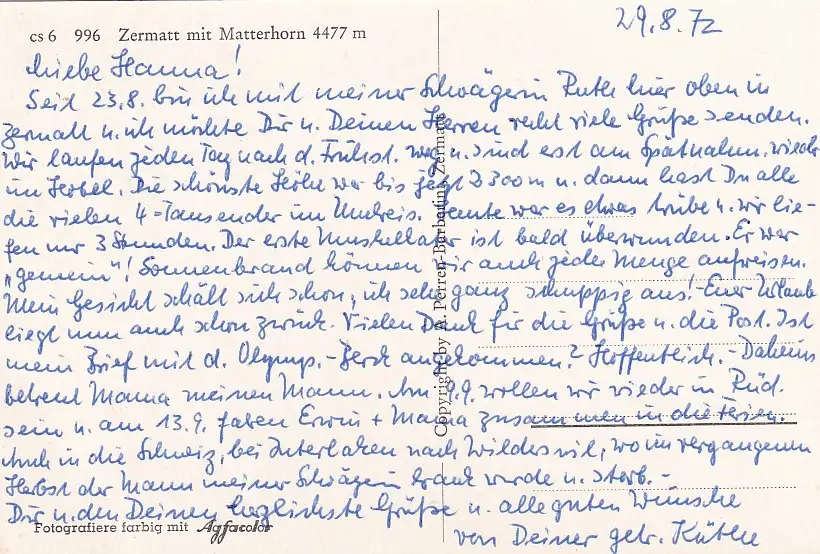 29.8.72
cs 6 996 Zermatt mit Matterhorn 4477 m
Liebe Hanna!
Seit 23.8. bin ich mit meiner Schwägerin Ruth hier oben in
Zermatt u. ich möchte Dir u. Deinen Herren recht viele Grüße senden.
Wir laufen jeden Tag nach d. Frühst. weg u. sind erst am Spätnachm. wieder
im Hotel. Die schönste Höhe war bis jetzt 2300 m u. dann hast Du alle
die vielen 4-Tausender im Umkreis. Heute war es etwas trübe u. wir lie-
fen nur 3 Stunden. Der erste Muskelkater ist bald überwunden. Er war
„gemein"! Sonnenbrand können wir auch jede Menge aufweisen.
Mein Gesicht schält sich schon, ich sehe ganz schuppig aus! - Euer Urlaub
liegt nun auch schon zurück. Vielen Dank für die Grüße u. die Post. Ist
mein Brief mit d. Olymp. - angekommen? Hoffentlich. - Daheim
betreut Mama meinen Mann. Am 9.9. wollen wir wieder in Rüd.
sein u. am 13.9. fahren Erwin + Mama zusammen in die Ferien.
Auch in die Schweiz, bei Interlaken nach Wilderswil, wo im vergangenen
Herbst der Mann meiner Schwägerin krank wurde u. starb. -
Dir u. den Deinen herzlichste Grüße u. alle guten Wünsche
von Deiner getr. Käthe
Fotografiere farbig mit Agfacolor
Copyright by A. Perren-Barberini, Zermatt